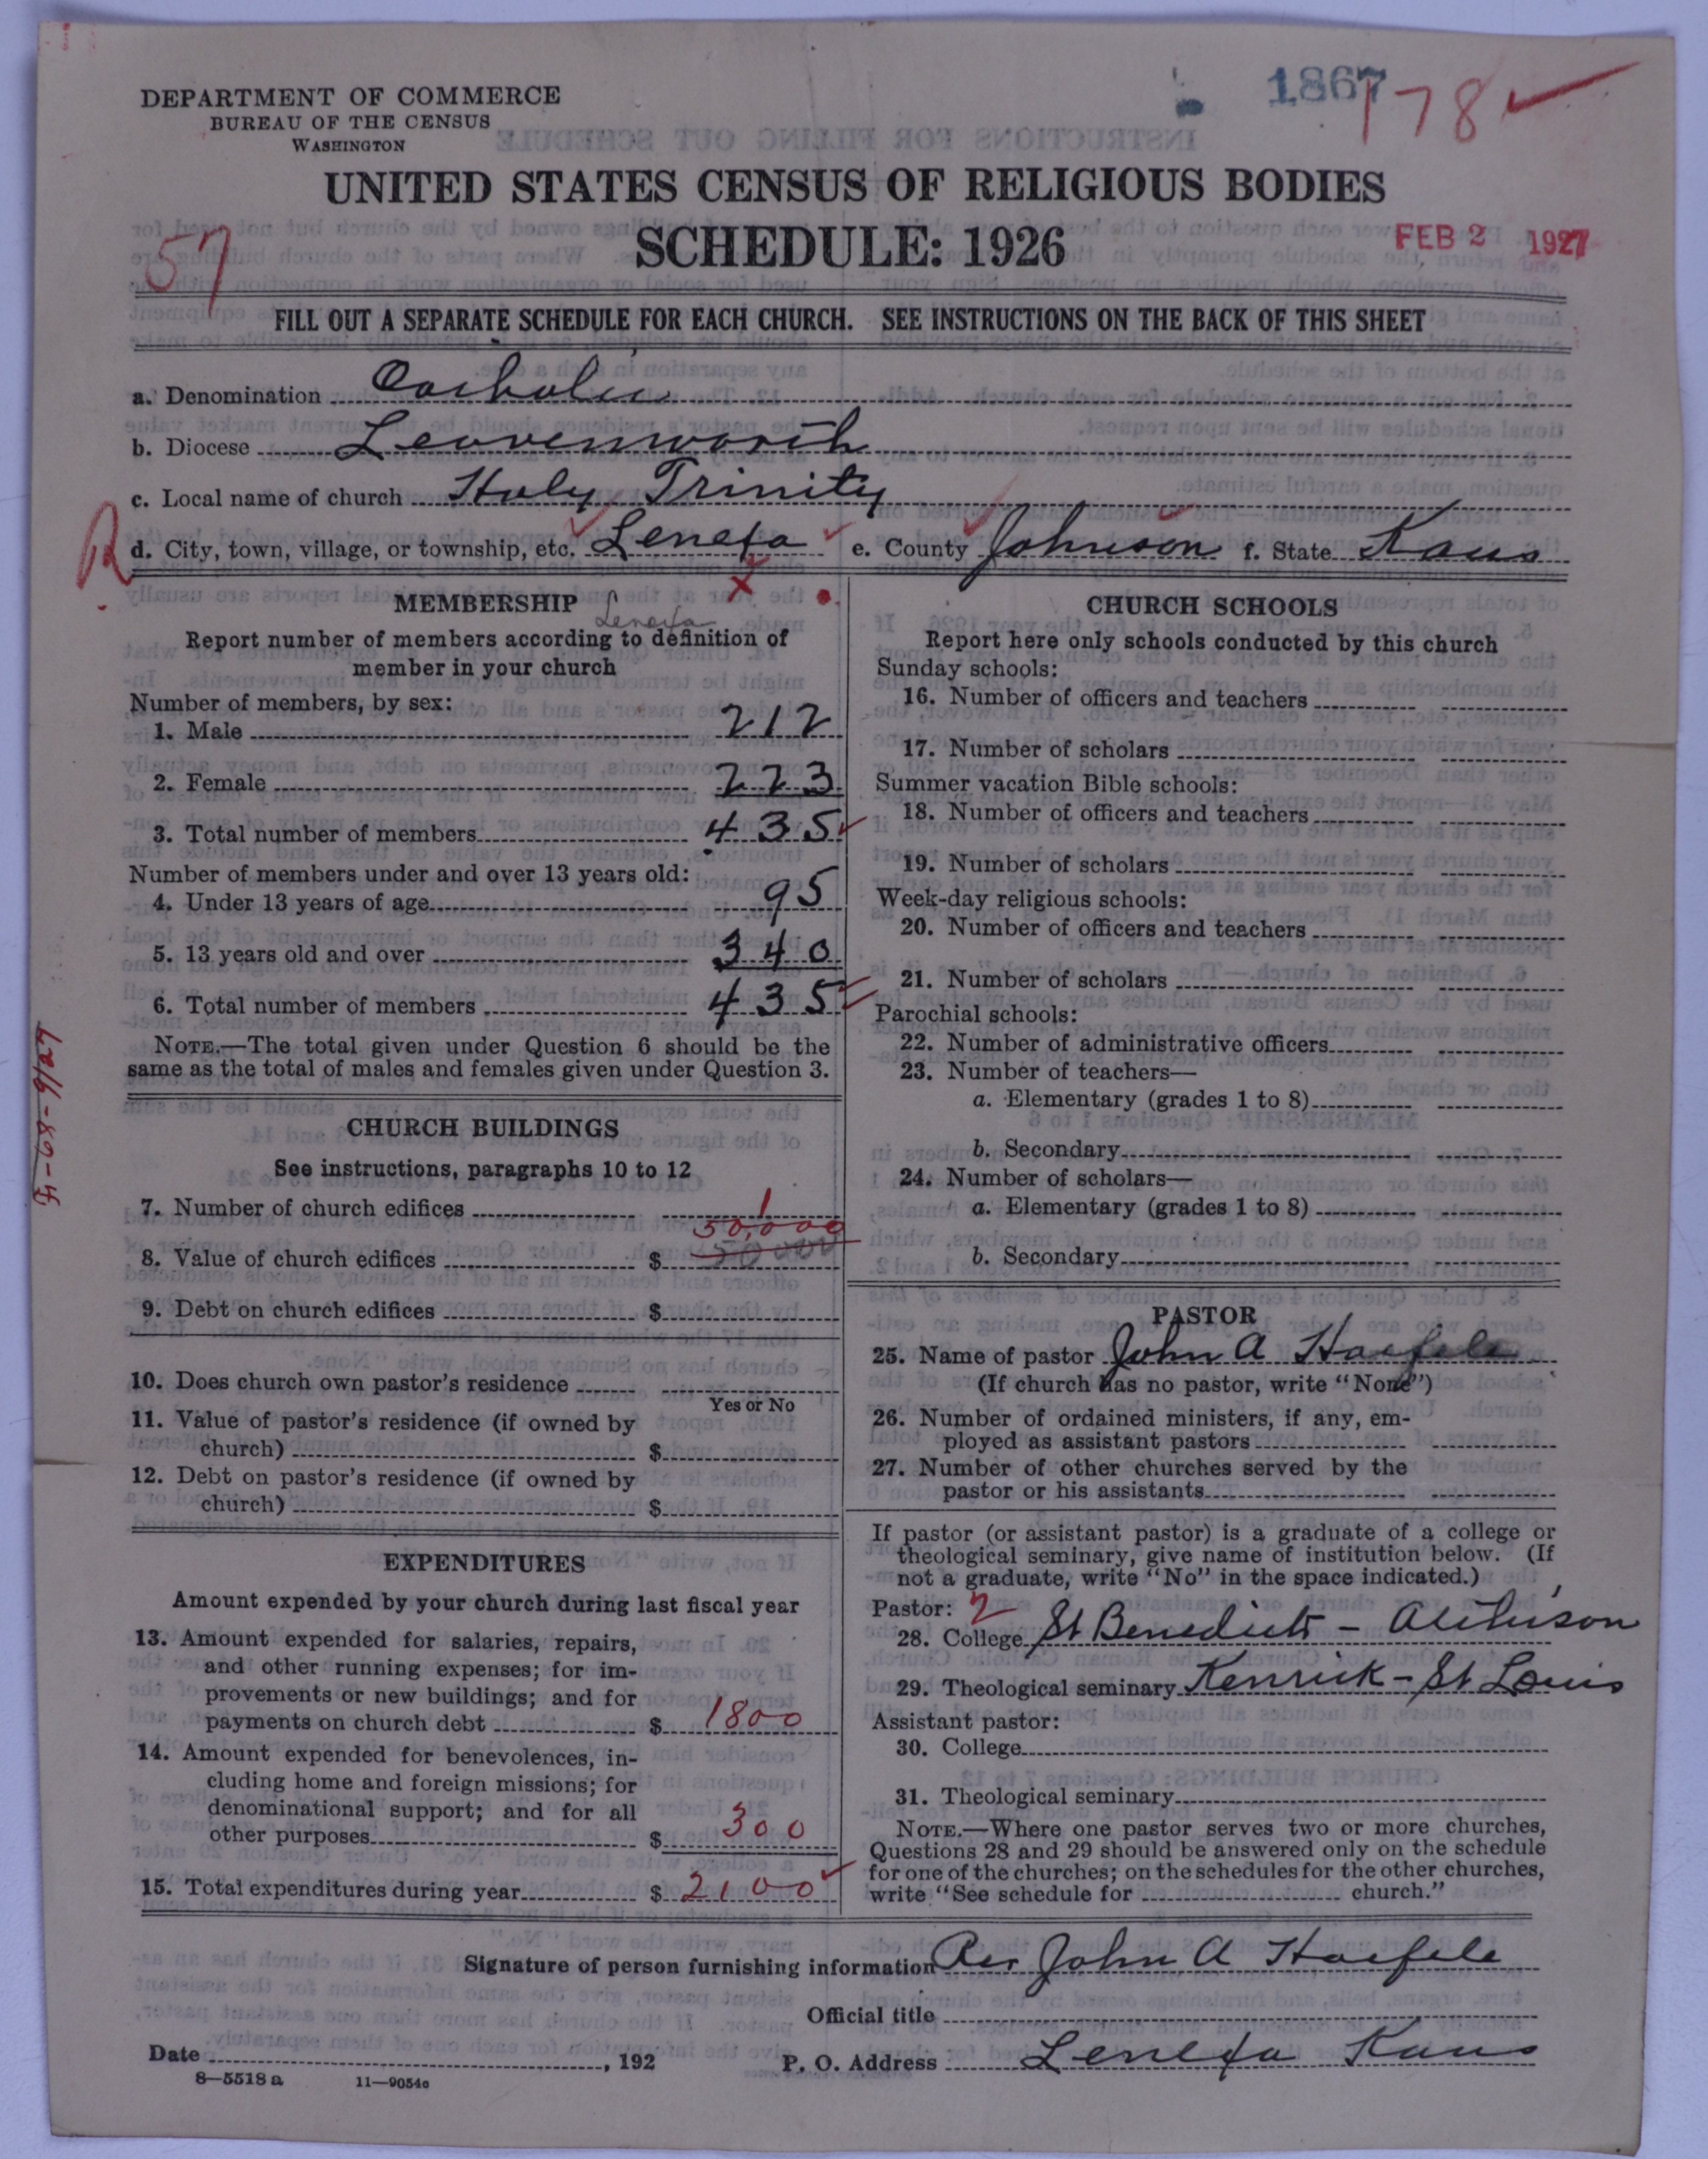 DEPARTMENT OF COMMERCE
BUREAU OF THE CENSUS
WASHINGTON
1867
178
UNITED STATES CENSUS OF RELIGIOUS BODIES
SCHEDULE: 1926
57
FEB 2 1927
FILL OUT A SEPARATE SCHEDULE FOR EACH CHURCH. SEE INSTRUCTIONS ON THE BACK OF THIS SHEET
a. Denomination Catholic
b. Diocese Leavenworth
c. Local name of church Holy Trinity
R d. City, town, village, or township, etc. Lenexa e. County Johnson f. State Kans
MEMBERSHIP
Lenexa
Report number of members according to definition of
member in your church
Number of members, by sex:
1. Male 212
2. Female 223
3. Total number of members 435
Number of members under and over 13 years old:
4. Under 13 years of age 95
5. 13 years old and over 340
6. Total number of members 435
NOTE.—The total given under Question 6 should be the
same as the total of males and females given under Question 3.
CHURCH BUILDINGS
See instructions, paragraphs 10 to 12
7. Number of church edifices 1
50,000
8. Value of church edifices $ 50000
9. Debt on church edifices $
10. Does church own pastor's residence
Yes or No
11. Value of pastor's residence (if owned by
church) $
12. Debt on pastor's residence (if owned by
church) $
EXPENDITURES
Amount expended by your church during last fiscal year
13. Amount expended for salaries, repairs,
and other running expenses; for im-
provements or new buildings; and for
payments on church debt $ 1800
14. Amount expended for benevolences, in-
cluding home and foreign missions; for
denominational support; and for all
other purposes $ 300
15. Total expenditures during year $ 2100
CHURCH SCHOOLS
Report here only schools conducted by this church
Sunday schools:
16. Number of officers and teachers
17. Number of scholars
Summer vacation Bible schools:
18. Number of officers and teachers
19. Number of scholars
Week-day religious schools:
20. Number of officers and teachers
21. Number of scholars
Parochial schools:
22. Number of administrative officers
23. Number of teachers—
a. Elementary (grades 1 to 8)
b. Secondary
24. Number of scholars—
a. Elementary (grades 1 to 8)
b. Secondary
PASTOR
25. Name of pastor John A Haefele
(If church has no pastor, write "None")
26. Number of ordained ministers, if any, em-
ployed as assistant pastors
27. Number of other churches served by the
pastor or his assistants
If pastor (or assistant pastor) is a graduate of a college or
theological seminary, give name of institution below. (If
not a graduate, write "No" in the space indicated.)
Pastor: 2
28. College St Benedicts - Atchison
29. Theological seminary Kenrick - St Louis
Assistant pastor:
30. College
31. Theological seminary
NOTE.—Where one pastor serves two or more churches,
Questions 28 and 29 should be answered only on the schedule
for one of the churches; on the schedules for the other churches,
write "See schedule for church."
Signature of person furnishing information Rev John A Haefele
Official title
Date , 192
P. O. Address Lenexa Kans
8—5518a 11—9054c